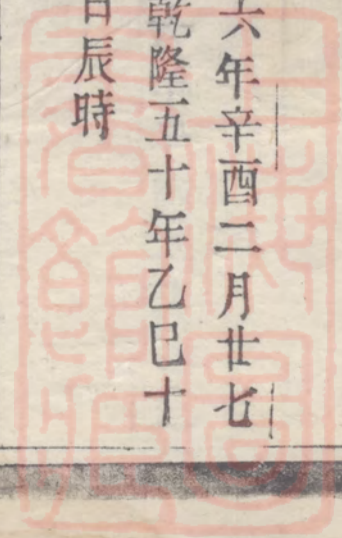 六年辛酉二月廿七
乾隆五十年乙巳十
日辰時